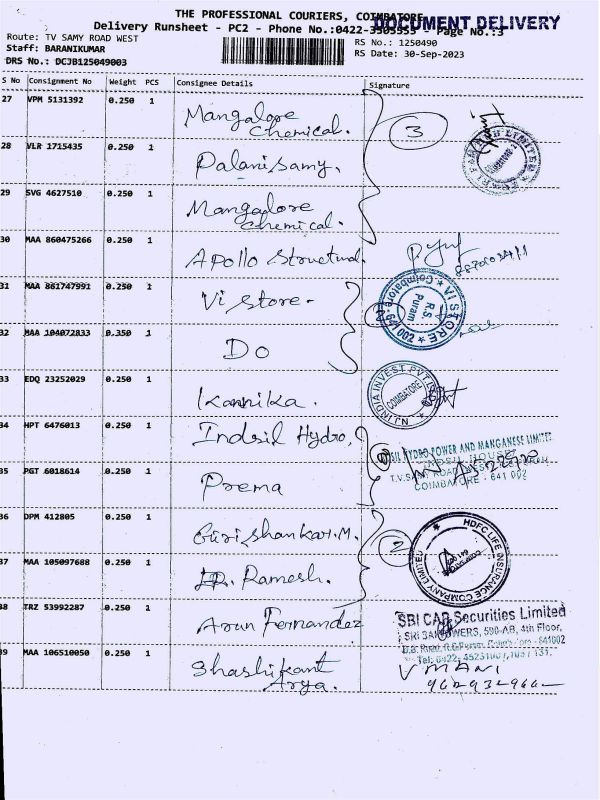 THE PROFESSIONAL COURIERS, COIMBATORE
DOCUMENT DELIVERY
Delivery Runsheet - PC2 - Phone No.:0422-3505555 - Page No.:3
Route: TV SAMY ROAD WEST
RS No.: 1250490
Staff: BARANIKUMAR
RS Date: 30-Sep-2023
DRS No.: DCJB125049003
S No Consignment No Weight PCS Consignee Details Signature
27 VPM 5131392 0.250 1 Mangalore Chemical.
3
28 VLR 1715435 0.250 1 Palanisamy.
29 SVG 4627510 0.250 1 Mangalore Chemical.
30 MAA 860475266 0.250 1 Apollo Structural.
31 MAA 861747991 0.250 1 Vi Store-
VI STORE
R.S. Puram
Coimbatore-641 002
32 MAA 104072833 0.350 1 Do
33 EDQ 23252029 0.250 1 Kannika.
NJ INDIA INVEST PVT LTD
COIMBATORE
34 HPT 6476013 1 Indsil Hydro,
SIL HYDRO POWER AND MANGANESE LIMITED
INDSIL HOUSE
T.V.SAMY ROAD
COIMBATORE - 641 002
35 PGT 6018614 0.250 1 Prema
36 DPM 412805 0.250 1 Gurishankar.M.
2
HDFC LIFE INSURANCE COMPANY LIMITED
37 MAA 105097688 0.250 1 Ramesh.
38 TRZ 53992287 0.250 1 Arun Fernandez
SBI CAP Securities Limited
SRI TOWERS, 590-AB, 4th Floor,
39 MAA 106510050 0.250 1 Shashikant Arya.
V MANI